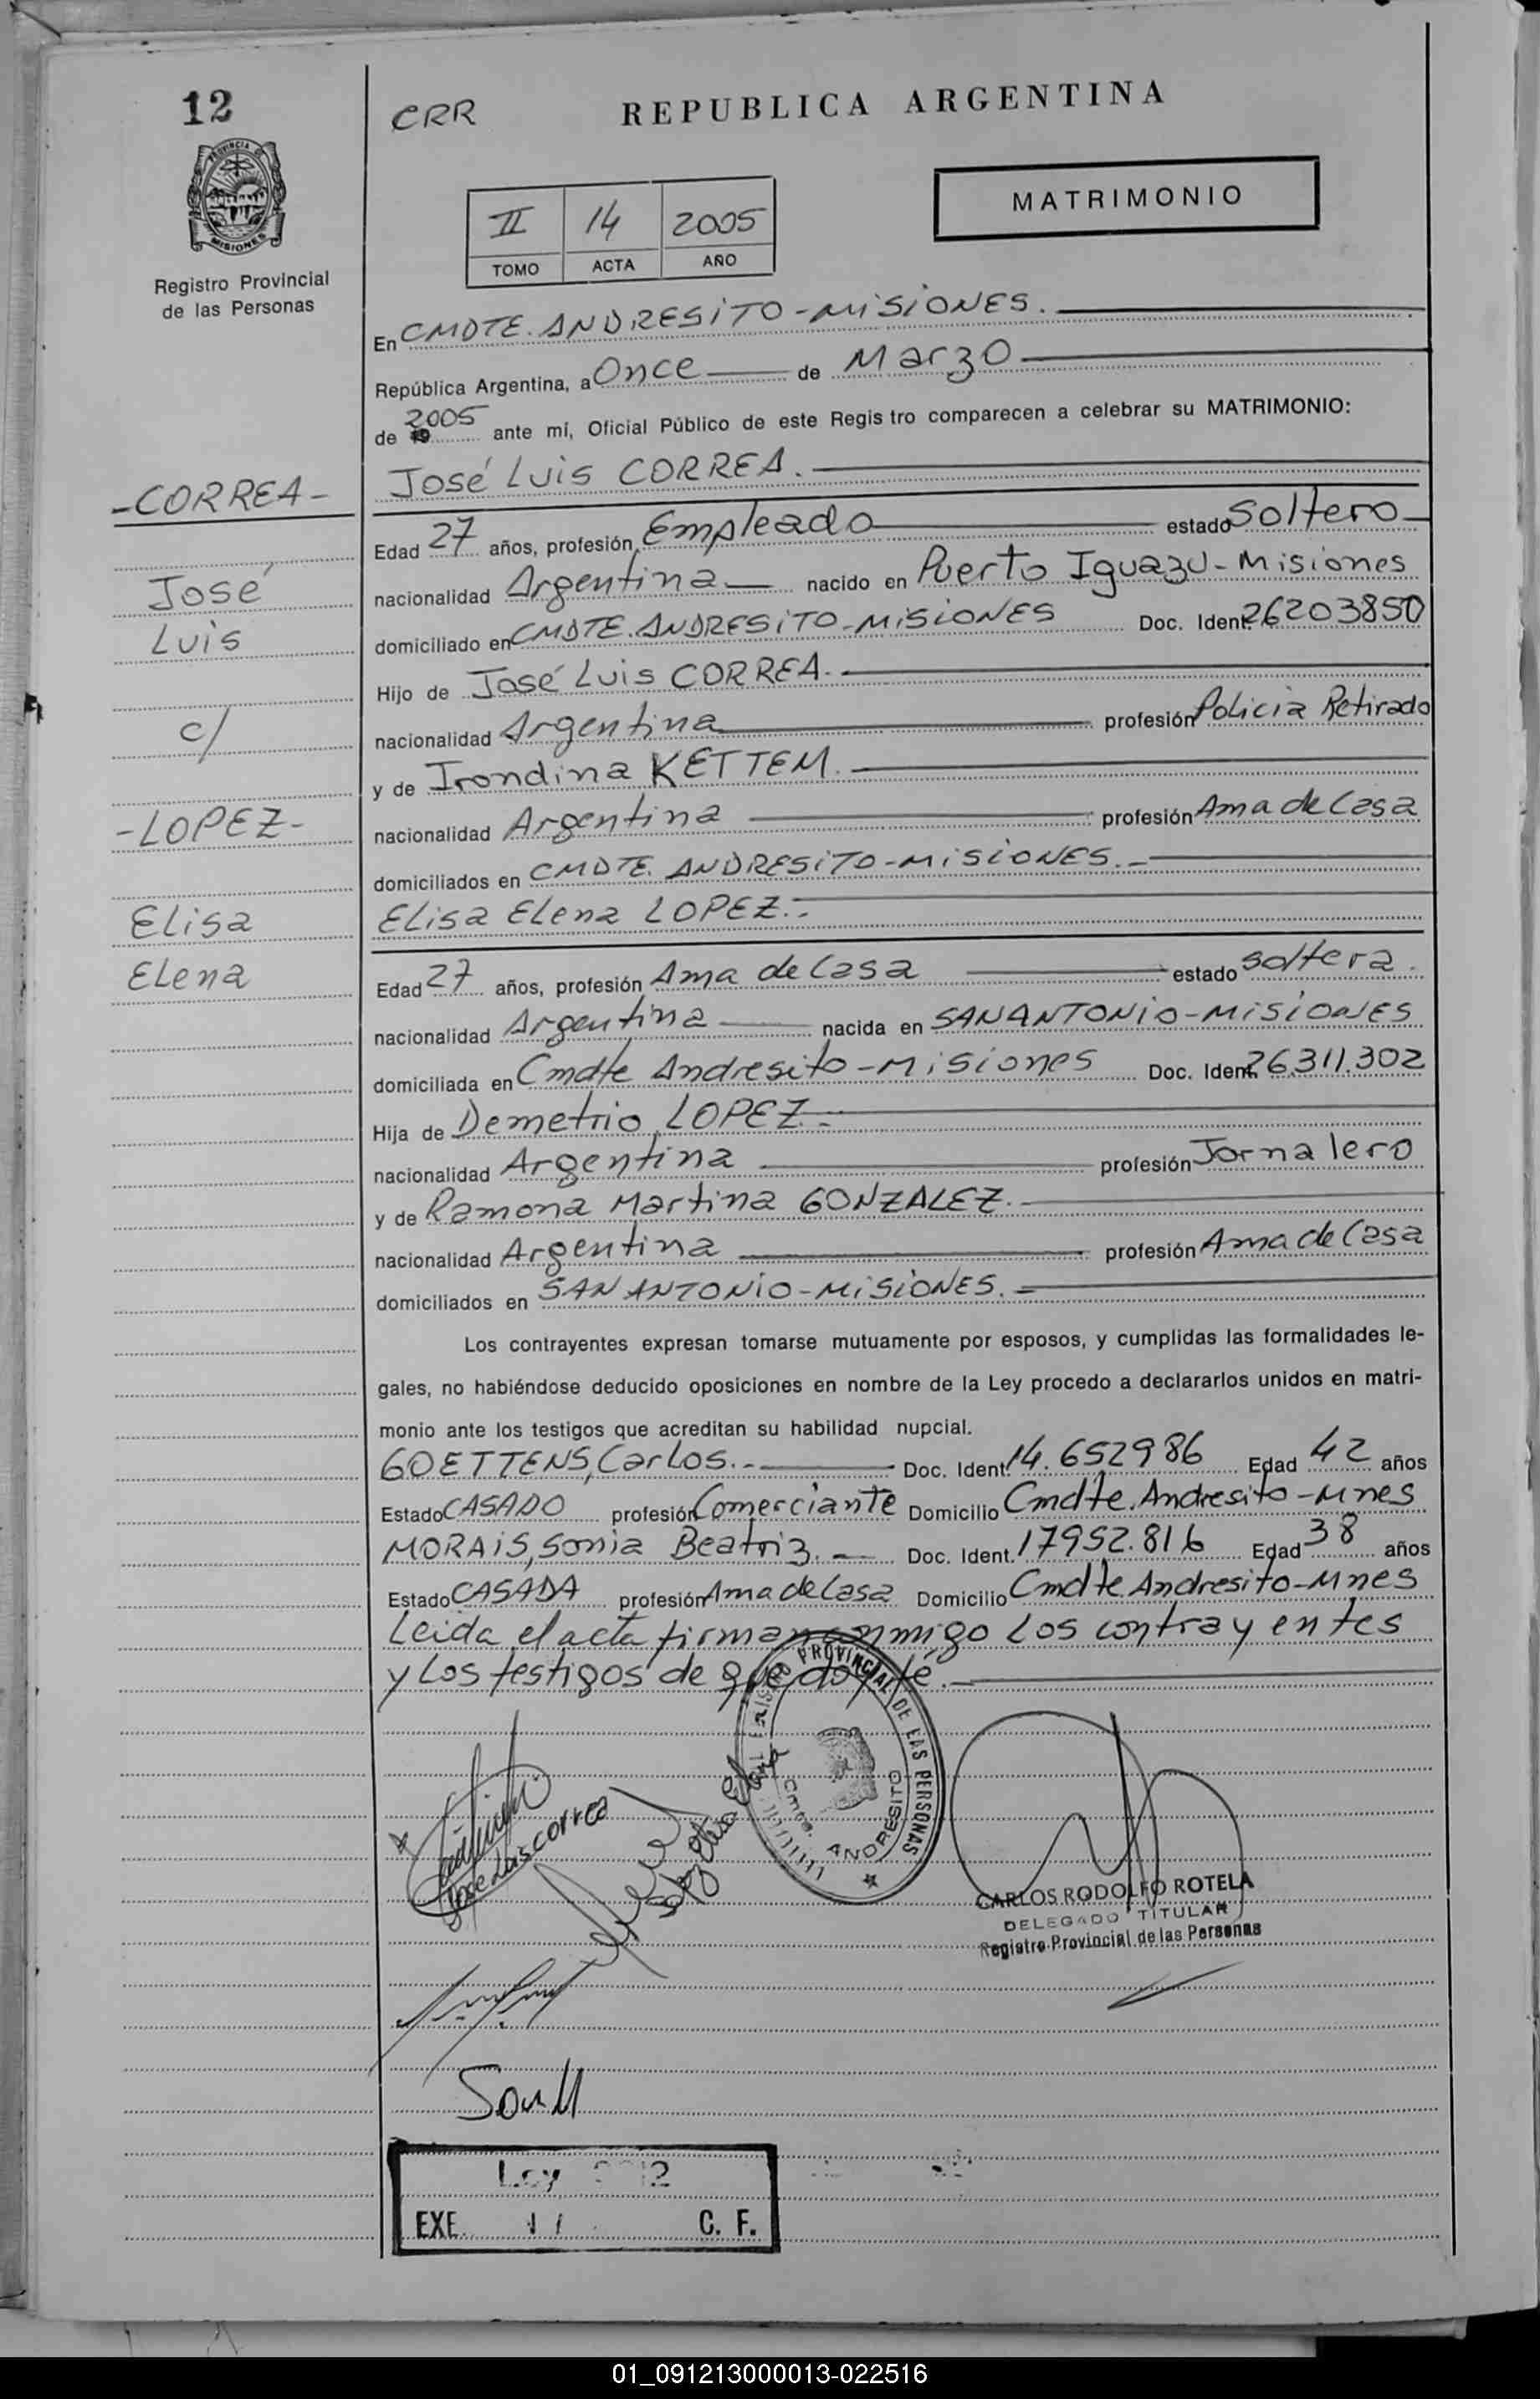 12
CRR
REPUBLICA ARGENTINA
PROVINCIA DE
MISIONES
Registro Provincial
de las Personas
MATRIMONIO
II 14 2005
TOMO ACTA AÑO
En CMDTE. ANDRESITO - MISIONES.
República Argentina, a Once de Marzo
de 19 2005 ante mí, Oficial Público de este Regis tro comparecen a celebrar su MATRIMONIO:
José Luis CORREA.
-CORREA-
Edad 27 años, profesión Empleado estado Soltero
José
nacionalidad Argentina nacido en Puerto Iguazu - Misiones
Luis
domiciliado en CMDTE. ANDRESITO - MISIONES Doc. Ident. 26203850
Hijo de José Luis CORREA.
c/
nacionalidad Argentina profesión Policia Retirado
y de Irondina KETTEM.
-LOPEZ-
nacionalidad Argentina profesión Ama de Casa
domiciliados en CMDTE. ANDRESITO - MISIONES.-
Elisa
Elisa Elena LOPEZ.-
Elena
Edad 27 años, profesión Ama de Casa estado soltera.
nacionalidad Argentina nacida en SAN ANTONIO - MISIONES
domiciliada en Cmdte Andresito - Misiones Doc. Ident. 26.311.302
Hija de Demetrio LOPEZ.-
nacionalidad Argentina profesión Jornalero
y de Ramona Martina GONZALEZ.-
nacionalidad Argentina profesión Ama de Casa
domiciliados en SAN ANTONIO - MISIONES.-
Los contrayentes expresan tomarse mutuamente por esposos, y cumplidas las formalidades le-
gales, no habiéndose deducido oposiciones en nombre de la Ley procedo a declararlos unidos en matri-
monio ante los testigos que acreditan su habilidad nupcial.
GOETTENS, Carlos.- Doc. Ident. 14.652986 Edad 42 años
Estado CASADO profesión Comerciante Domicilio Cmdte. Andresito - Mnes
MORAIS, Sonia Beatriz.- Doc. Ident. 17952.816 Edad 38 años
Estado CASADA profesión Ama de Casa Domicilio Cmdte Andresito - Mnes
Leida el acta firman conmigo los contrayentes
y los testigos de que doy fé.-
REGISTRO PROVINCIAL DE LAS PERSONAS
Cmdo. ANDRESITO
Jose Luis correa
Lopez Elisa Elena
CARLOS RODOLFO ROTELA
DELEGADO TITULAR
Registro Provincial de las Personas
Ley
EXE. C. F.
01_091213000013-022516